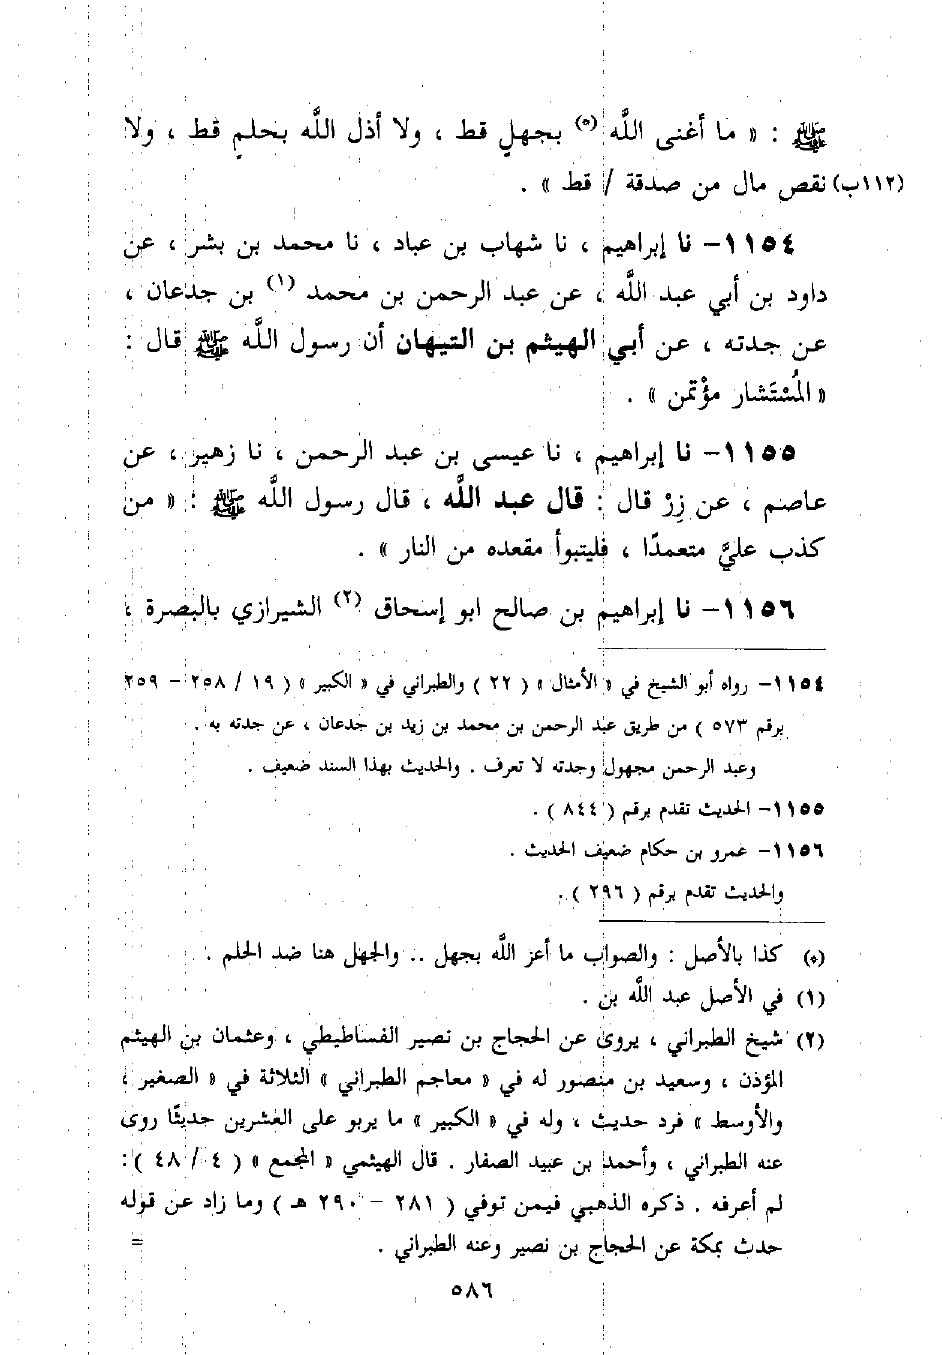 ﷺ : « ما أغنى الله (٥) بجهلٍ قط ، ولا أذل الله بحلمٍ قط ، ولا
(١١٢ب) نقص مال من صدقة / قط » .
١١٥٤– نا إبراهيم ، نا شهاب بن عباد ، نا محمد بن بشر ، عن
داود بن أبي عبد الله ، عن عبد الرحمن بن محمد (١) بن جدعان ،
عن جدته ، عن أبي الهيثم بن التيهان أن رسول الله ﷺ قال :
« المُسْتَشار مؤْتمن » .
١١٥٥– نا إبراهيم ، نا عيسى بن عبد الرحمن ، نا زهير ، عن
عاصم ، عن زِرْ قال : قال عبد الله ، قال رسول الله ﷺ : « من
كذب عليَّ متعمدًا ، فليتبوأ مقعده من النار » .
١١٥٦– نا إبراهيم بن صالح ابو إسحاق (٢) الشيرازي بالبصرة ،
١١٥٤– رواه أبو الشيخ في « الأمثال » ( ٢٢ ) والطبراني في « الكبير » ( ١٩ / ٢٥٨ – ٢٥٩
برقم ٥٧٣ ) من طريق عبد الرحمن بن محمد بن زيد بن جدعان ، عن جدته به .
وعبد الرحمن مجهول وجدته لا تعرف . والحديث بهذا السند ضعيف .
١١٥٥– الحديث تقدم برقم ( ٨٤٤ ) .
١١٥٦– عمرو بن حكام ضعيف الحديث .
والحديث تقدم برقم ( ٢٩٦ ) .
(٥) كذا بالأصل : والصواب ما أعز الله بجهل .. والجهل هنا ضد الحلم .
(١) في الأصل عبد الله بن .
(٢) شيخ الطبراني ، يروى عن الحجاج بن نصير الفساطيطي ، وعثمان بن الهيثم
المؤذن ، وسعيد بن منصور له في « معاجم الطبراني » الثلاثة في « الصغير ،
والأوسط » فرد حديث ، وله في « الكبير » ما يربو على العشرين حديثًا روى
عنه الطبراني ، وأحمد بن عبيد الصفار . قال الهيثمي « المجمع » ( ٤ / ٤٨ ) :
لم أعرفه . ذكره الذهبي فيمن توفي ( ٢٨١ – ٢٩٠ هـ ) وما زاد عن قوله
حدث بمكة عن الحجاج بن نصير وعنه الطبراني . =
٥٨٦